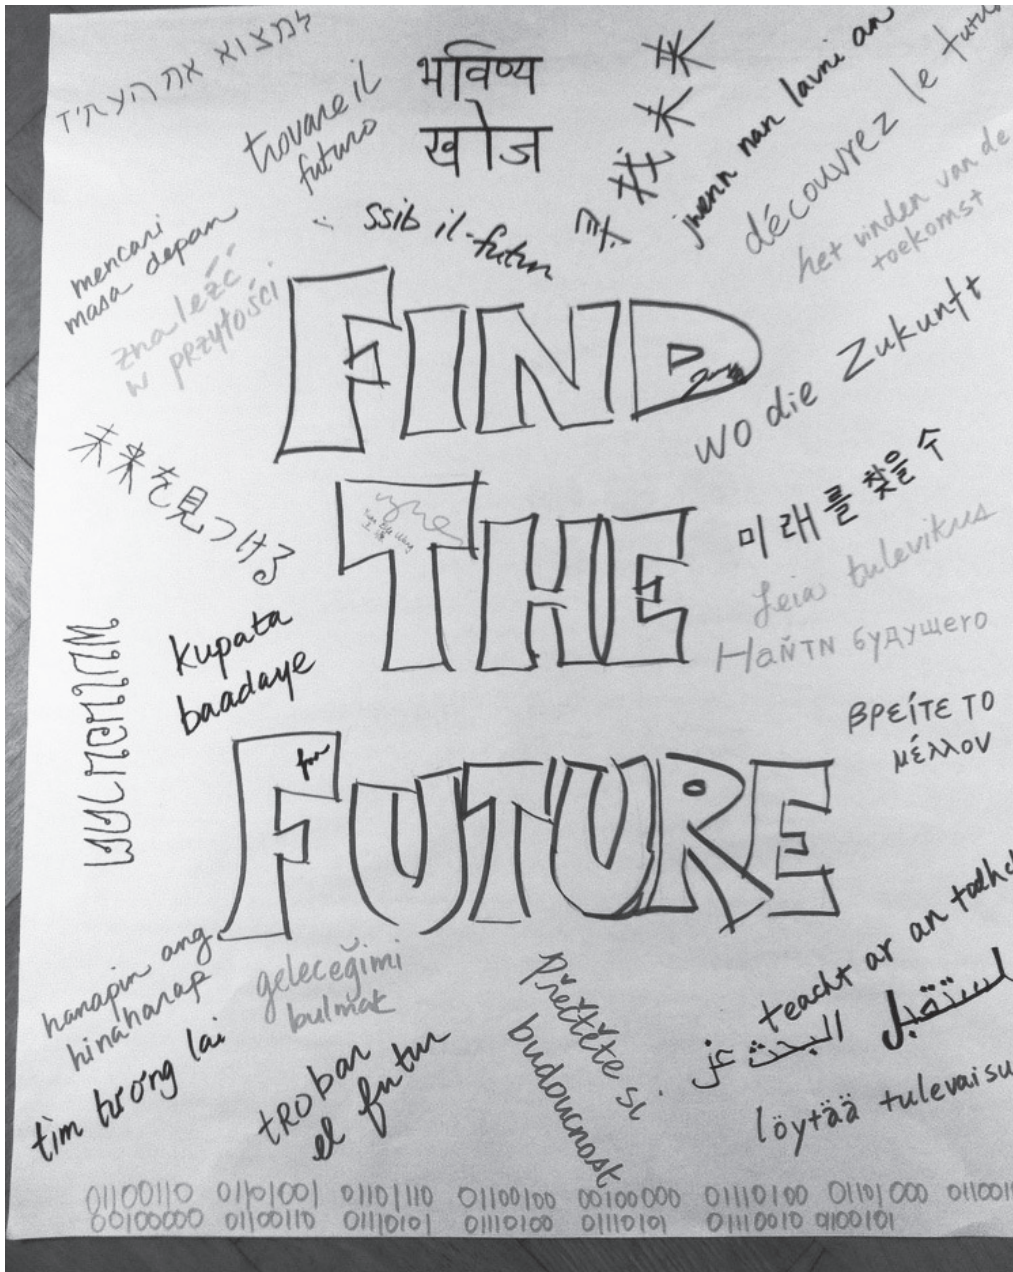 למצוא את העתיד
trovare il
futuro
भविष्य
खोज
jwenn nan lavni an
découvrez le futur
het vinden van de
toekomst
ssib il-futur
mencari
masa depan
znaleźć
w przyłości
FIND
wo die Zukunft
未来を見つける
THE
미래를 찾을 수
Leia tulevikus
Найти будущего
kupata
baadaye
βρείτε το
μέλλον
FUTURE
hanapin ang
hinaharap
geleceğimi
bulmak
Přečtěte si
budoucnost
teacht ar an todhc
البحث عن
المستقبل
tìm tương lai
trobar
el futur
löytää tulevaisu
01100110 01101001 01101110 01100100 00100000 01110100 01101000 011001
00100000 01100110 01110101 01110100 01110101 01110010 0100101